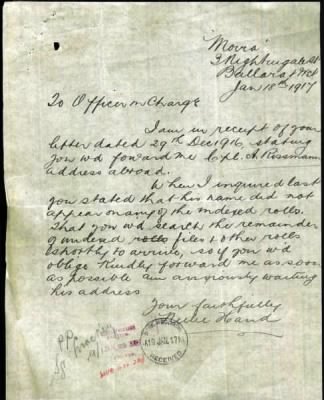 "Moira"
3 Nightingale St
Ballarat Wst
Jan 18th 1917
To Officer in Charge
I am in receipt of your
letter dated 29th Dec 1916, stating
you wd forward me Cpl. A. Rossmann
address abroad.
When I inquired last
you stated that his name did not
appear on any of the indexed rolls.
That you wd search the remainder
of indexed rolls files & other rolls
shortly to arrive, so if you wd
oblige Kindly forward me as soon
as possible am anxiously waiting
his address
Your faithfully
Hand
19 JAN 1917
RECEIVED